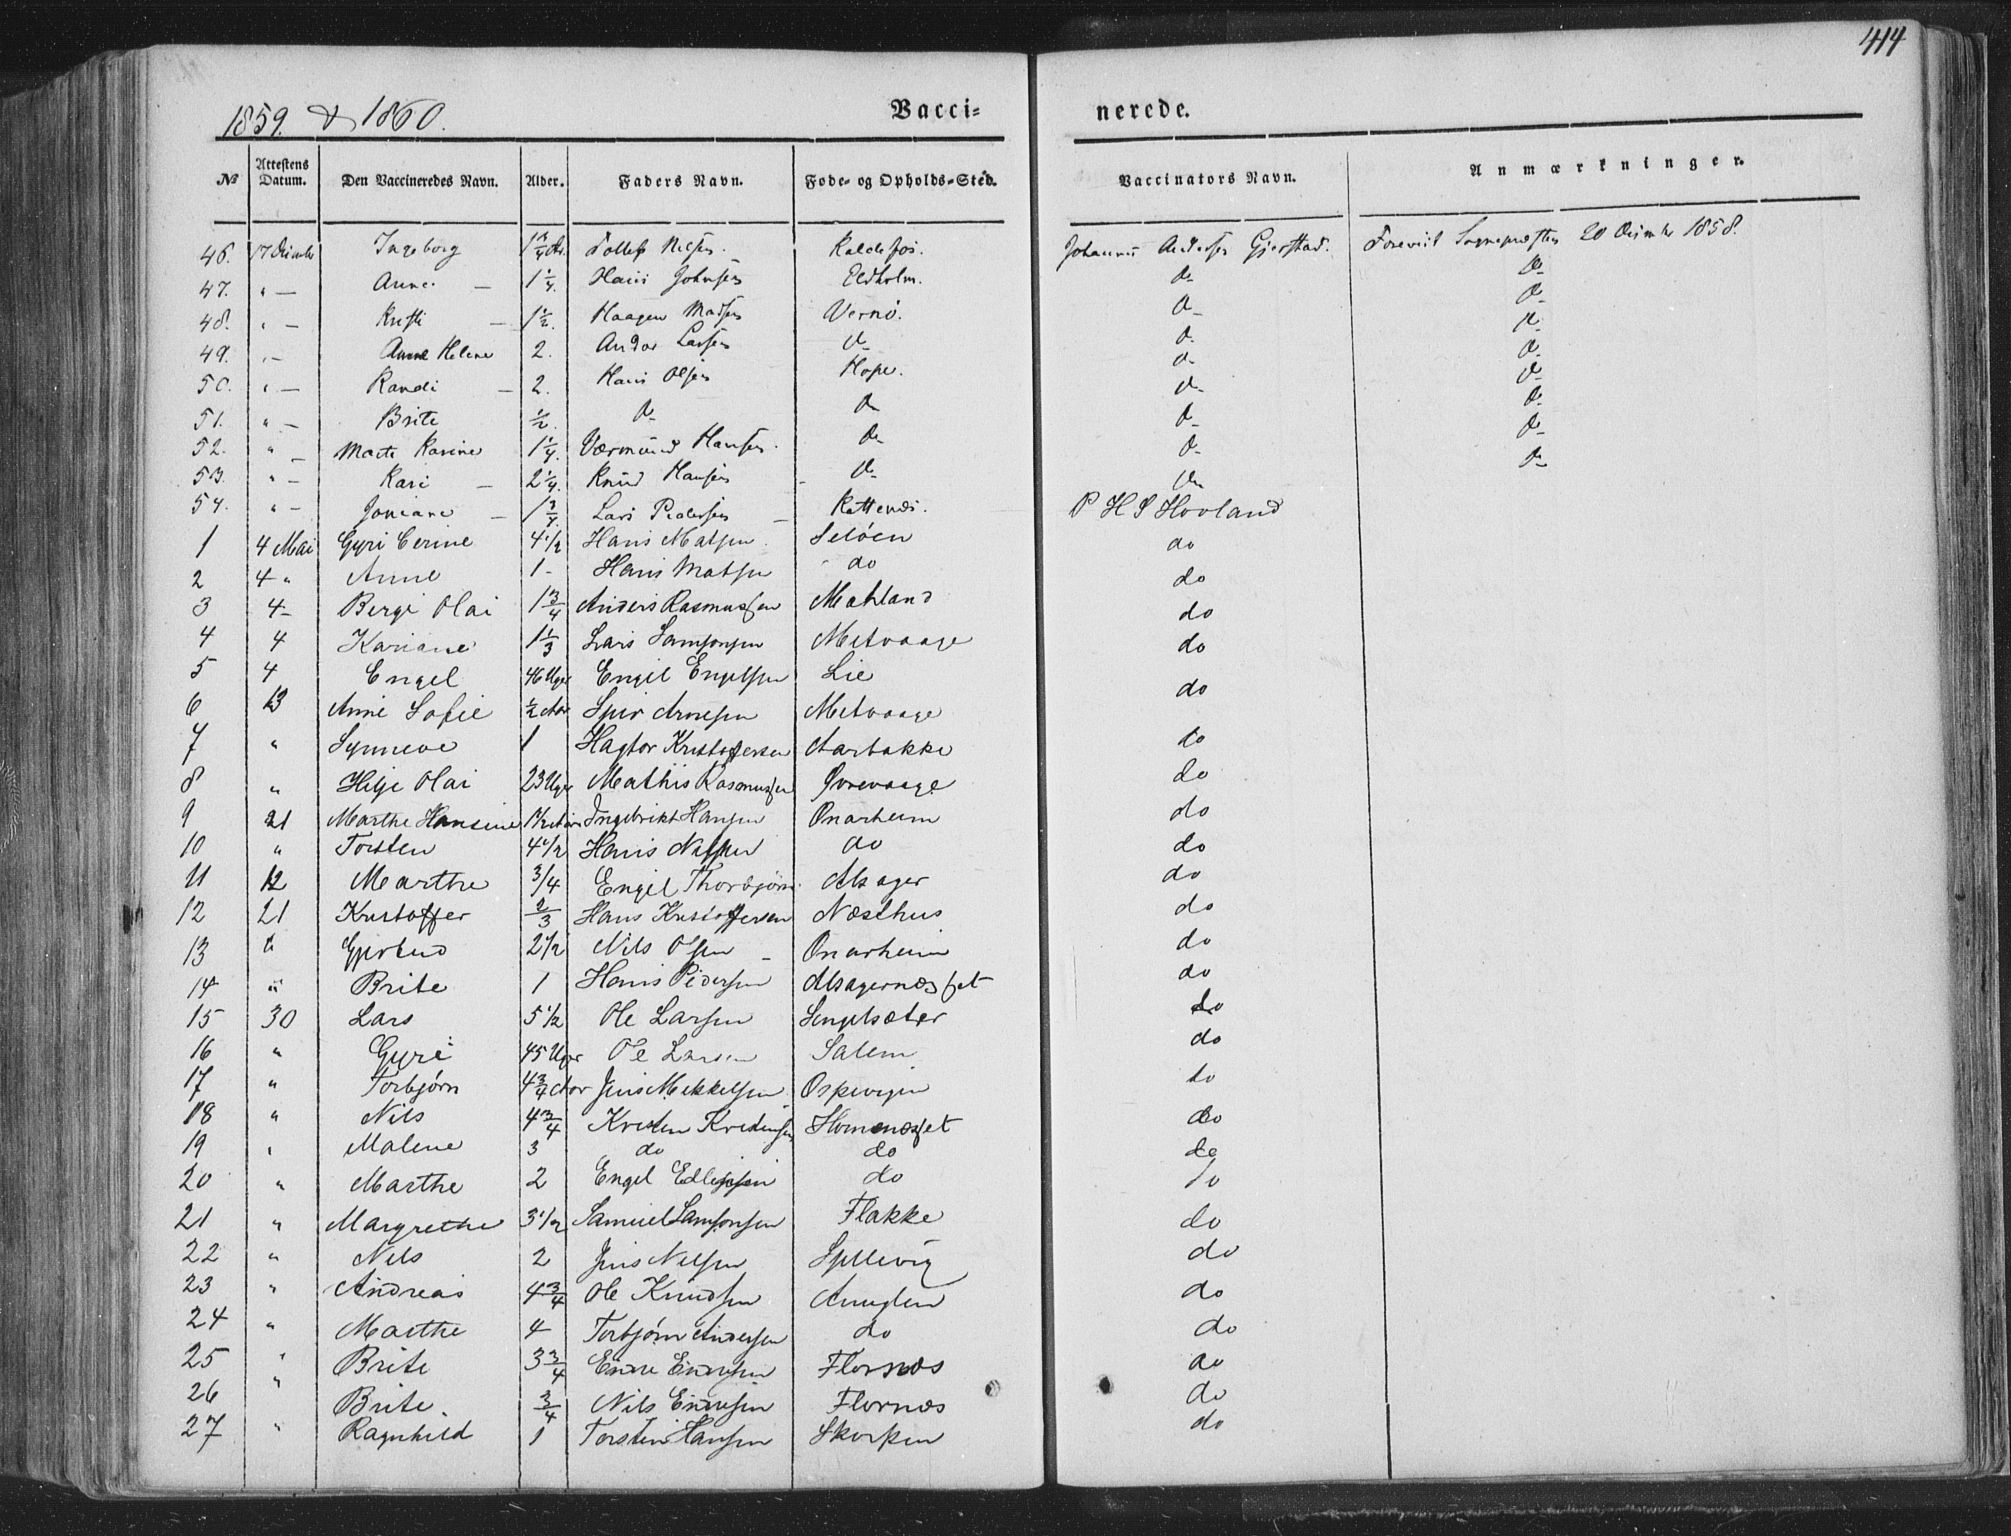 414
1859. & 1860.
Vacci= nerede.
No | Attestens Datum. | Den Vaccineredes Navn. | Alder. | Faders Navn. | Føde- og Opholds-Sted. | Vaccinators Navn. | Anmærkninger.
46. | 17 | Ingeborg | 1 1/4 | Tollef Nilsen | Kaldefos. | Johannes Andersen Gjerstad. | Foreviist Sognepræsten 20 1858.
47. | " — | Anne — | 1 1/4. | Hans Johnsen | Eldholm. | do | do
48. | " — | Kristi — | 1 1/2. | Haagen Madsen | Vernø. | do | do
49. | " — | Anne Helene | 2. | Andor Larsen | do | do | do
50. | " — | Randi — | 2. | Hans Olsen | Hope. | do | do
51. | " — | Brite | 1/2. | do | do | do | do
52. | " — | Marte Karine | 1 1/4. | Værmund Hansen. | do | do | do
53. | " — | Kari — | 2 1/4. | Knud Hansen | do | do | do
54. | " — | Joniane — | 1 3/4. | Lars Pedersen | Kattenes. | do | do
1 | 4 Mai | Gyri Cerine | 4 1/2 | Hans Matsen | Seløen | P H S Hovland
2 | 4 " | Anne | 1 - | Hans Matsen | do | do
3 | 4 - | Bergi Olai | 1 3/4 | Anders Rasmussen | Mehland | do
4 | 4 | Kariane | 1 1/3 | Lars Samsonsen | Metvaage | do
5 | 4 | Engel | 46 Uger | Engel Engelsen | Lie | do
6 | 13 | Anne Sofie | 1/2 Aar | Sjur Arnesen | Metvaage | do
7 | " | Synneve | 1 | Hagtor Kristoffersen | Aarbakke | do
8 | " | Helje Olai | 23 Uger | Mathis Rasmussen | Øvrevaage | do
9 | 21 | Marthe Hansine | 1 1/2 Aar | Ingebrikt Hansen | Onarheim | do
10 | " | Torsten | 4 1/2 | Hans Natsen | do | do
11 | 12 | Marthe | 3/4 | Engel Thorbjørn | Alsager | do
12 | 21 | Kristoffer | 2/3 | Hans Kristoffersen | Næsthus | do
13 | " | Gjertrud | 2 1/2 | Nils Olsen | Onarheim | do
14 | " | Brite | 1 | Hans Pedersen | Alsagernæsset | do
15 | 30 | Lars | 5 1/2 | Ole Larsen | Sengelsæter | do
16 | " | Gyri | 45 Uger | Ole Larsen | Salem | do
17 | " | Torbjørn | 4 3/4 Aar | Jens Mekkelsen | Ospevigen | do
18 | " | Nils | 4 3/4 | Kristen Kristensen | Homenæsset | do
19 | " | Malene | 3 | do | do | do
20 | " | Marthe | 2 | Engel Edlefsen | do | do
21 | " | Margrethe | 3 1/2 | Samuel Samsonsen | Flakke | do
22 | " | Nels | 2 | Jens Nelsen | Syllevig | do
23 | " | Andreas | 4 3/4 | Ole Knudsen | Anuglen | do
24 | " | Marthe | 4 | Torbjørn Andersen | do | do
25 | " | Brite | 3 3/4 | Endre Endresen | Flornæs | do
26 | " | Brite. | 3/4 | Nils Endresen | Flornæs | do
27 | " | Ragnhild | 1 | Torsten Hansen | Skorpen | do